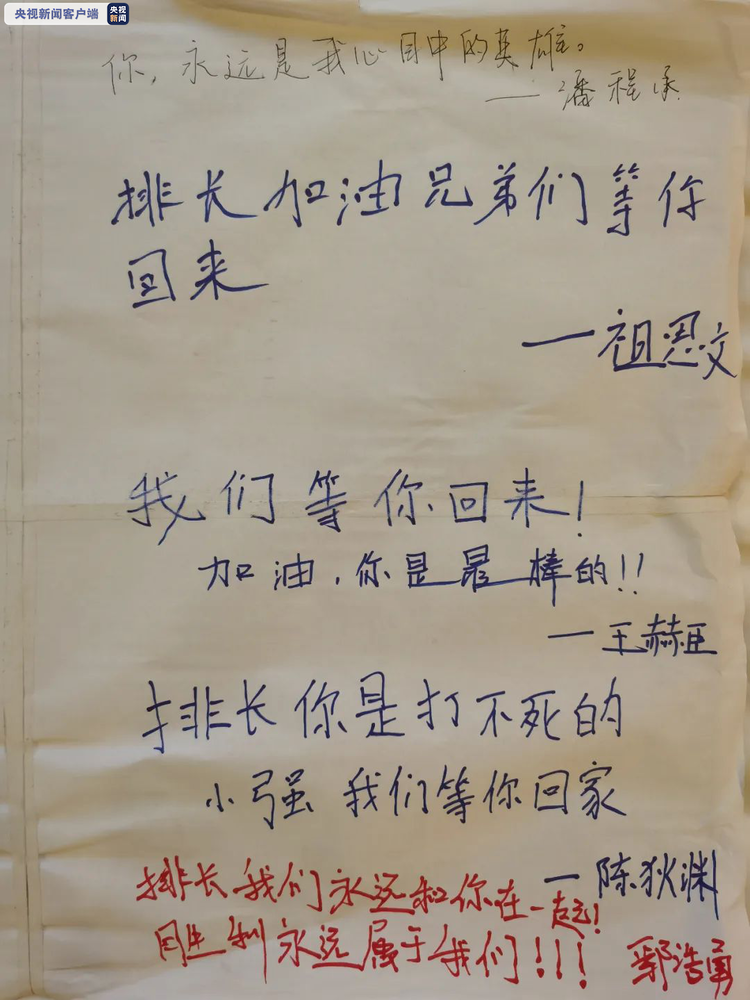 央视新闻客户端
央视
新闻
你,永远是我心目中的英雄。
—潘程承
排长加油兄弟们等你
回来
—祖恩文
我们等你回来!
加油,你是最棒的!!
—王赫臣
排长你是打不死的
小强 我们等你回家
—陈狄渊
排长我们永远和你在一起!
胜利永远属于我们!!!
鄢浩勇